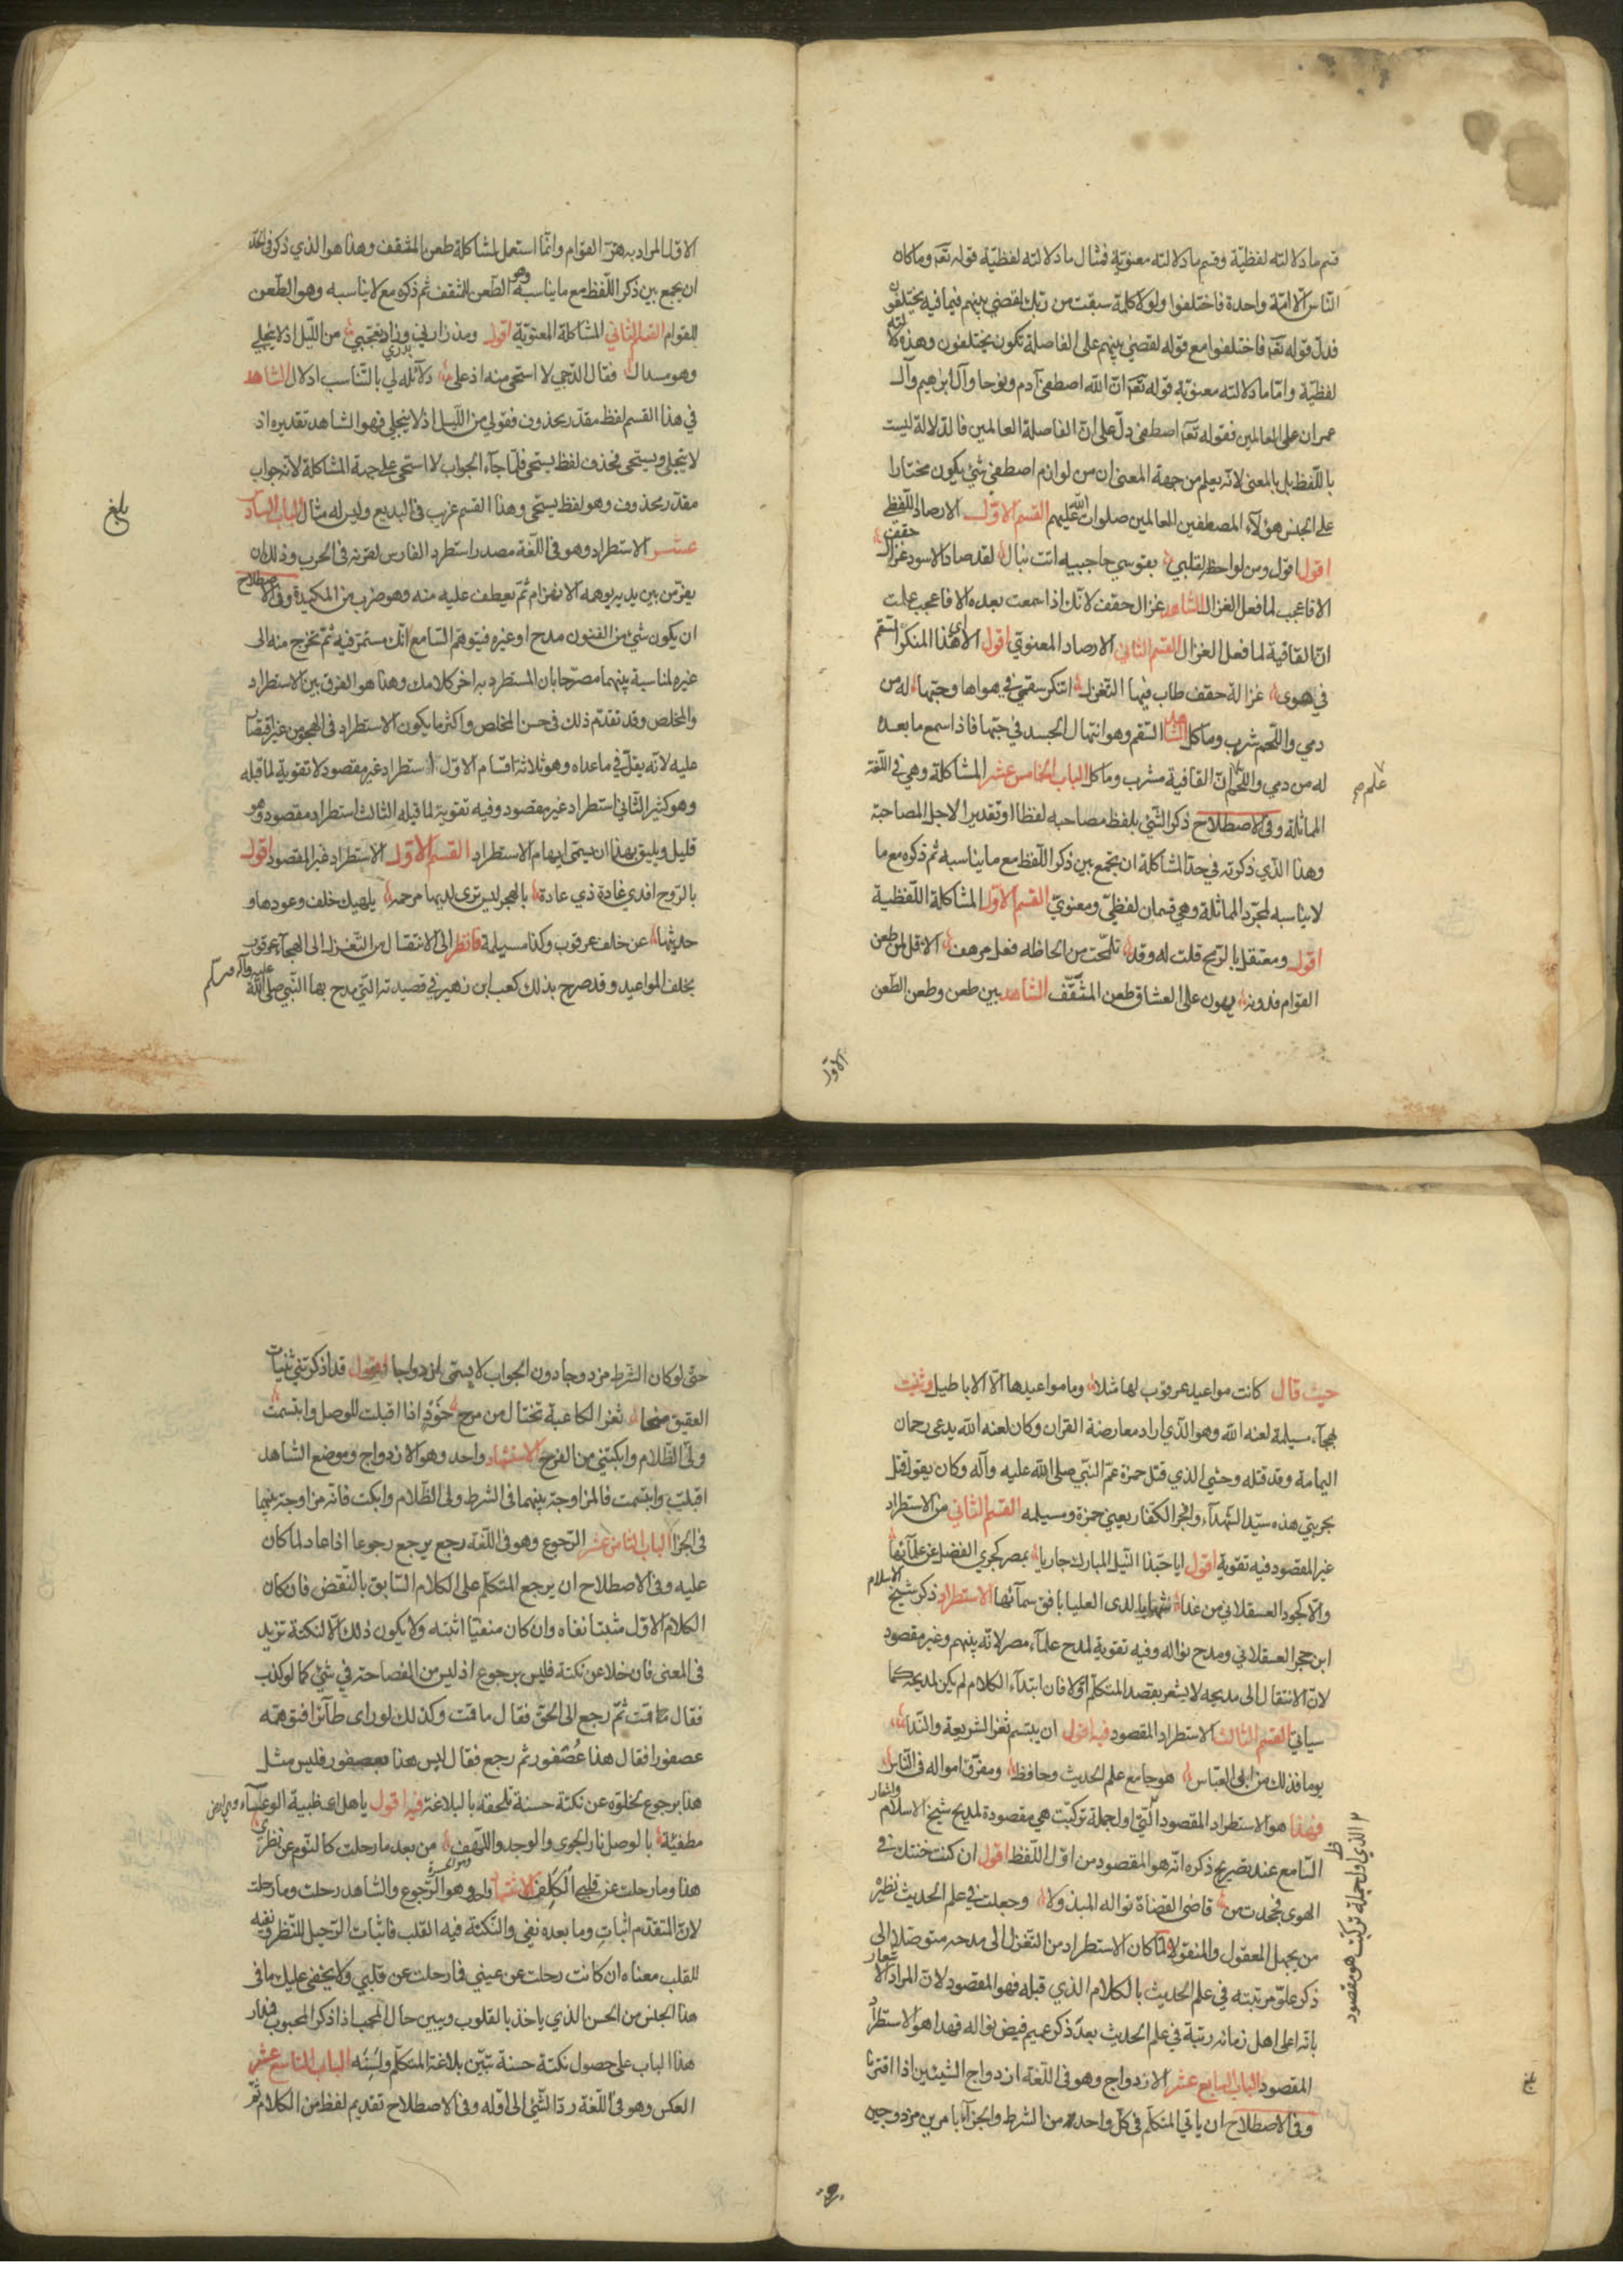 قسم ما دلالته لفظيّة وقسم ما دلالته معنويّة فمثال ما دلالته لفظيّة قوله تعه وما كان
النّاس الّا امّة واحدة فاختلفوا ولولا كلمة سبقت من ربّك لقضى بينهم فيما فيه يختلفون
فدلّ قوله تعه فاختلفوا مع قوله لقضى بينهم على الفاصلة تكون يختلفون وهذه دلالته
لفظيّة وامّا ما دلالته معنويّة قوله تعه انّ الله اصطفى آدم ونوحا وآل ابرهيم وآل
عمران على العالمين فقوله تعه اصطفى دلّ على انّ الفاصلة العالمين فالدلالة ليست
باللّفظ بل بالمعنى لانّه يعلم من جهة المعنى ان من لوازم اصطفى شئ يكون مختارا
على الجنس هؤلآء المصطفين العالمين صلوات الله عليهم القسم الاوّل الارصاد اللّفظى
اقول اقول ومن لواحظ لقلبي بقوسي حاجبيه اتت نبال لقد صاد الاسود غزال حقف
الا فاعجب لما فعل الغزال الشاهد غزال حقف لانّك اذا سمعت بعده الا فاعجب علمت
انّ القافية لما فعل الغزال القسم الثاني الارصاد المعنوي اقول الا اىّ هذا المنكر السّقم
في هوى غزالة حقف طاب فيها التغزل اتنكر سقمي في هواها وحبّها له من
دمي واللّحم شرب وماكل الشاهد السّقم وهو انتحال الجسد في حبّها فاذا سمع ما بعده
له من دمي واللّحم علم انّ القافية مشرب وماكل الباب الخامس عشر المشاكلة وهي في اللّغة
المماثلة وفي الاصطلاح ذكر الشّئ بلفظ مصاحبه لفظا او تقديرا لاجل المصاحبة
وهذا الّذي ذكرته في حدّ المشاكلة ان يجمع بين ذكر اللّفظ مع ما يناسبه ثم ذكره مع ما
لا يناسبه لمجرّد المماثلة وهي قسمان لفظيّ ومعنويّ القسم الاوّل المشاكلة اللّفظية
اقول ومعتقل بالرّمح قلت له وقد تلمّحت من الحاظه فعل مرهف الا قل لمن طعن
القوام فدونه يهون على العشاق طعن المثقّف الشاهد بين طعن وطعن الطّعن
الاوّل
الاوّل المراد به هزّ القوام وانّما استعمل لمشاكلة طعن المثقف وهذا هو الذي ذكر في الحدّ
ان يجمع بين ذكر اللّفظ مع ما يناسبه وهو الطّعن للثقف ثم ذكره مع لا يناسبه وهو الطّعن
للقوام القسم الثاني المشاكلة المعنويّة اقول ومذ زارني وزاد تعجّبي من اللّيل اذ لا ينجلي
وهو مسدل فقال الدّجي لا استحى منه اذ على بدري دلآئله لي بالتّناسب ادلال الشاهد
في هذا القسم لفظ مقدّر محذوف فقولي من اللّيل اذ لا ينجلي فهو الشاهد تقديره اذ
لا ينجلى ويستحى فحذف لفظ يستحى فلمّا جآء الجواب لا استحى على جهة المشاكلة لانّه جواب
مقدّر محذوف وهو لفظ يستحى وهذا القسم غريب في البديع وليس له مثال الباب السّادس
عشر الاستطراد وهو في اللّغة مصدر استطرد الفارس لقرنه في الحرب وذلك ان
يفرّ من بين يديه يوهمه الانهزام ثمّ يعطف عليه منه وهو ضرب من المكيدة وفي الاصطلاح
ان يكون شئ من الفنون مدح او غيره فيتوهّم السّامع انّك مستمرّ فيه ثمّ تخرج منه الى
غيره لمناسبة بينهما مصرّحا بان المستطرد به آخر كلامك وهذا هو الفرق بين الاستطراد
والمخلص وقد تقدّم ذلك في حسن المخلص واكثر ما يكون الاستطراد في الهجو من غير اقتصار
عليه لانّه يقلّ في ما عداه وهو ثلاثة اقسام الاوّل استطراد غير مقصود لا تقوية لما قبله
وهو كثير الثّاني استطراد غير مقصود وفيه تقوية لما قبله الثالث استطراد مقصود وهو
قليل ويليق بهذا ان يسمّى ايهام الاستطراد القسم الاوّل الاستطراد غير المقصود اقول
بالرّوح افدي غادة ذي عادة بالهجر ليس ترى لديها مرحمه يلهيك خلف وعودها و
حديثها عن خلف عرقوب وكذا مسيلمة فانظر الى الانتقال من التّغزل الى الهجآء عرقوب
بخلف المواعيد وقد صرح بذلك كعب ابن زهير في قصيدته التي مدح بها النّبي صلى الله عليه وآله وسلم
بلغ
حيث قال كانت مواعيد عرقوب لها مثلا وما مواعيدها الّا الاباطيل وثنيت
بهجآء مسيلمة لعنه الله وهو الّذي اراد معارضة القران وكان لعنه الله يدعى رحمان
اليمامة وقد قتله وحشي الذي قتل حمزة عمّ النّبي صلى الله عليه وآله وكان يقول قتل
بحربتي هذه سيّد الشّهدآء وافجر الكفّار يعني حمزة ومسيلمه القسم الثاني من الاستطراد
غير المقصود فيه تقوية اقول ايا حبّذا النّيل المبارك جاريا بمصر كجري الفضل عن علمآئها
والّا كجود العسقلاني من غدا شهابا لدى العليا بافق سمآئها الاستطراد ذكر شيخ الاسلام
ابن حجر العسقلاني ومدح نواله وفيه تقوية لمدح علمآء مصر لانّه بينهم وغير مقصود
لانّ الانتقال الى مديحه لا يشعر بقصد المتكلّم اوّلا فان ابتدآء الكلام لم يكن لمديحه كما
سياتي القسم الثالث الاستطراد المقصود فيه اقول ان يبتسم ثغر الشريعة والنّدا
يوما فذلك من ابي العبّاس هو جامع علم الحديث وحافظ ومفرّق امواله في النّاس
فهذا هو الاستطراد المقصود الّتي اول جملة تركبّت هي مقصودة لمديح شيخ الاسلام
السّامع عند تصريح ذكره انّه هو المقصود من اوّل اللّفظ اقول ان كنت خنتك في
الهوى فجحدت من قاضي القضاة نواله المبذولا وجعلت في علم الحديث نظيره
من يجهل المعقول والمنقولا لمّا كان الاستطراد من التّغزل الى مدحه متوصّلا الى
ذكر علوّ مرتبته في علم الحديث بالكلام الذي قبله فهو المقصود لانّ المراد الاشعار
بانّه اعلى اهل زمانه رتبة في علم الحديث بعد ذكر عميم فيض نواله فهذا هو الاستطراد
المقصود الباب السابع عشر الازدواج وهو في اللّغة ازدواج الشيئين اذا اقترنا
وفي الاصطلاح ان ياتي المتكلّم في كلّ واحد من الشرط والجزآء بامرين مزدوجين
الذي اول جملة تركبّت هو مقصود
بلغ
حتى لو كان الشّرط مزدوجا دون الجواب لا يسمّى ازدواجا اقول قد اذكرتني ثنيات
العقيق ضحا ثغر الكاعبة تختال من مرح خَوْدٍ اذا اقبلت للوصل وابتسمت
ولّى الظّلام وابكتني من الفرح الاستشهاد واحد وهو الازدواج وموضع الشاهد
اقبلت وابتسمت فالمزاوجة بينهما في الشرط ولى الظّلام وابكت فانّه مزاوجة بينهما
في الجزا الباب الثامن عشر الرّجوع وهو في اللّغة رجع يرجع رجوعا اذا عاد لما كان
عليه وفي الاصطلاح ان يرجع المتكلّم على الكلام السّابق بالنّقض فان كان
الكلام الاوّل مثبتا نفاه وان كان منفيّا اثبته ولا يكون ذلك الّا لنكتة تزيد
في المعنى فان خلا عن نكتة فليس برجوع اذ ليس من الفصاحة في شئ كما لو كذب
فقال قمت ثمّ رجع الى الحقّ فقال ما قمت وكذلك لو راى طآئرا فتوهّمه
عصفورا فقال هذا عُصفور ثم رجع فقال ليس هذا بعصفور فليس مثل
هذا برجوع لخلوّه عن نكتة حسنة تلحقه بالبلاغة فيه اقول يا هل لظبية الوعسآء
مطفيّة بالوصل نار الجوى والوجد واللّهف من بعد ما رحلت كالنّوم عن نظري
هذا وما رحلت عن قلبي الكلف الاستشهاد واحد وهو الرّجوع والشاهد رحلت وما رحلت
لانّ المتقدّم اثباتٌ وما بعده نفى والنّكتة فيه القلب فاثبات الرّحيل للنّظر ونفيه
للقلب معناه ان كانت رحلت عن عيني فما رحلت عن قلبي ولا يخفى عليك ما في
هذا الجنس من الحسن الذي ياخذ بالقلوب ويبين حال المحب اذا ذكر المحبوب فمدار
هذا الباب على حصول نكتة حسنة تبيّن بلاغة المتكلّم ولَسِنُه الباب التاسع عشر
العكس وهو في اللّغة ردّ الشّئ الى اوّله وفي الاصطلاح تقديم لفظ من الكلام ثمّ